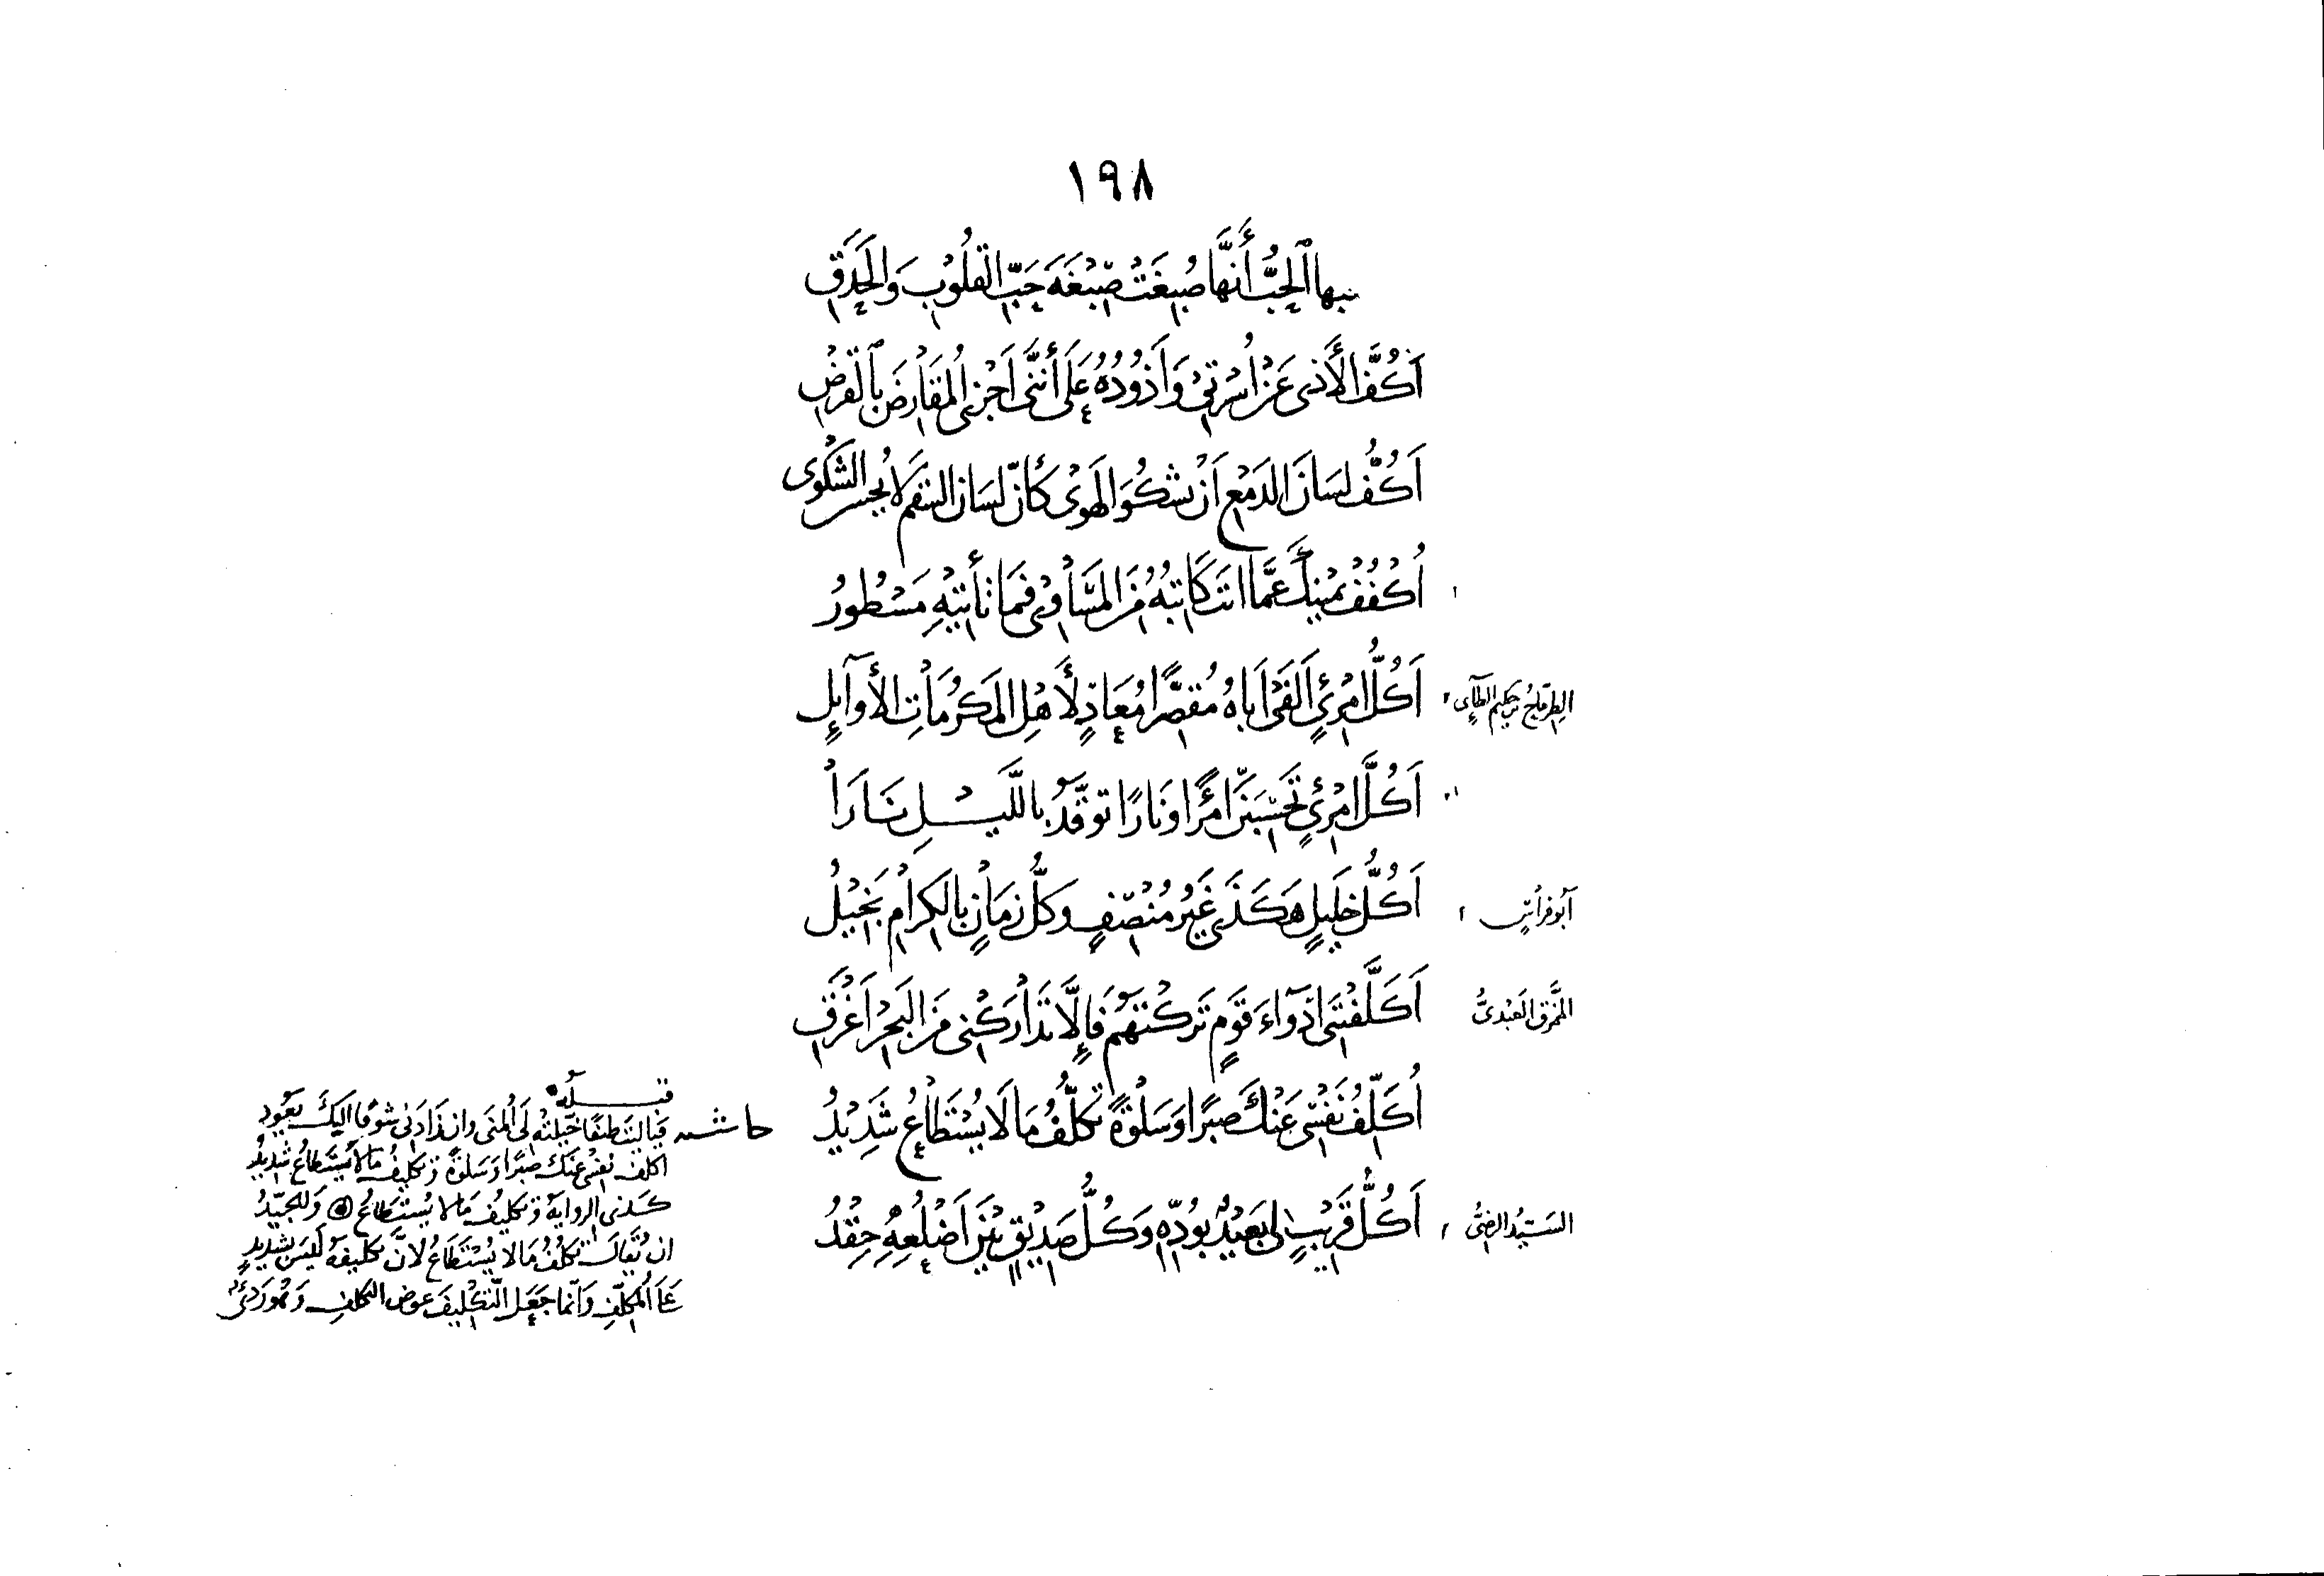 ١٩٨
بها الحُبُّ أَنَّهَا صُبِغَتْ صِبْغَةَ حَبِّ القُلُوْبِ وَالحَدَقِ
أَكُفُّ الأَذَى عَنْ أُسْرَتِيْ وَأَذُوْدُهُ عَلَى أَنَّنِى أَجْزِى المُقَارِضَ بِالْقَرْضِ
أَكُفُّ لِسَانَ الدَمْعِ أَنْ يَشْكُوَ الهَوَى كَأَنَّ لِسَانَ السُقْمِ لَا يُحْسِنُ الشَكْوَى
أُكْفُفْ يَمِيْنَكَ عَمَّا انتَ كَاتِبُهُ مِنَ المَسَاوِىْ فَمَا تَأْتِيْهِ مَسْطُورُ
الطِرِمَّاح بن حكيم الطآىِ
أَكُلُّ امْرِئٍ أَلْفَى أَبَاهُ مُقَصِّرًا مُعَادٍ لأَهْلِ المَكْرُمَاتِ الأَوَآئِلِ
أَكُلَّ امْرِئٍ تَحْسَبِيْنَ امْرًأ وَنَارًا تَوَقَّدُ بِاللَّيْلِ نَارَا
أبو فراس
أَكُلُّ خَلِيلٍ هَكَذَى غَيْرُ مُنْصِفٍ وَكُلُّ زَمَانٍ بِالكِرَامِ بَخِيْلُ
المُمَزَّق العَبْدِىُّ
أَكَلَّفْتَنِى أَدْوَآءَ قَوْمٍ تَرَكْتَهُمْ فَإِلَّا تَدَارَكْنِى مِنَ البَحْرِ أَغْرَقِ
أُكَلِّفُ نَفْسِى عَنْكَ صَبْرًا وَسَلْوَةً تَكَلُّفُ مَا لَا يُسْتَطَاعُ شَدِيْدُ
السَيِّدُ الرضِىُّ
أَكُلُّ قَرِيْبٍ لِى بَعِيْدٌ بِوُدِّهِ وَكُلُّ صَدِيْقٍ بَيْنَ أَضْلُعِهِ حِقْدُ
حاشيه
قبلُه
فَيَا لَيْتَ طَيْفًا خَيَّلَتْهُ لِى المُنَى وان زَادَنِى شَوْقًا اليكَ يَعُود
اكلف نفسى عنكَ صبرًا وَسَلوَةً وَتَكليفُ مَا لا يُسْتَطَاعُ شديدُ
كَذى الروايه وَتكليفُ مَا لا يُستَطَاعُ وَالجَيِّدُ
ان يُقَالَ تكلُّفُ مَا لا يُسْتَطَاعُ لانَّ تكليفهُ لَيْسَ بشديدٍ
عَلَى المكلّفِ وَانَّما جَعَلَ التَكْلِيفَ عوض التكلفِ وَهُوَ رَدِىْء